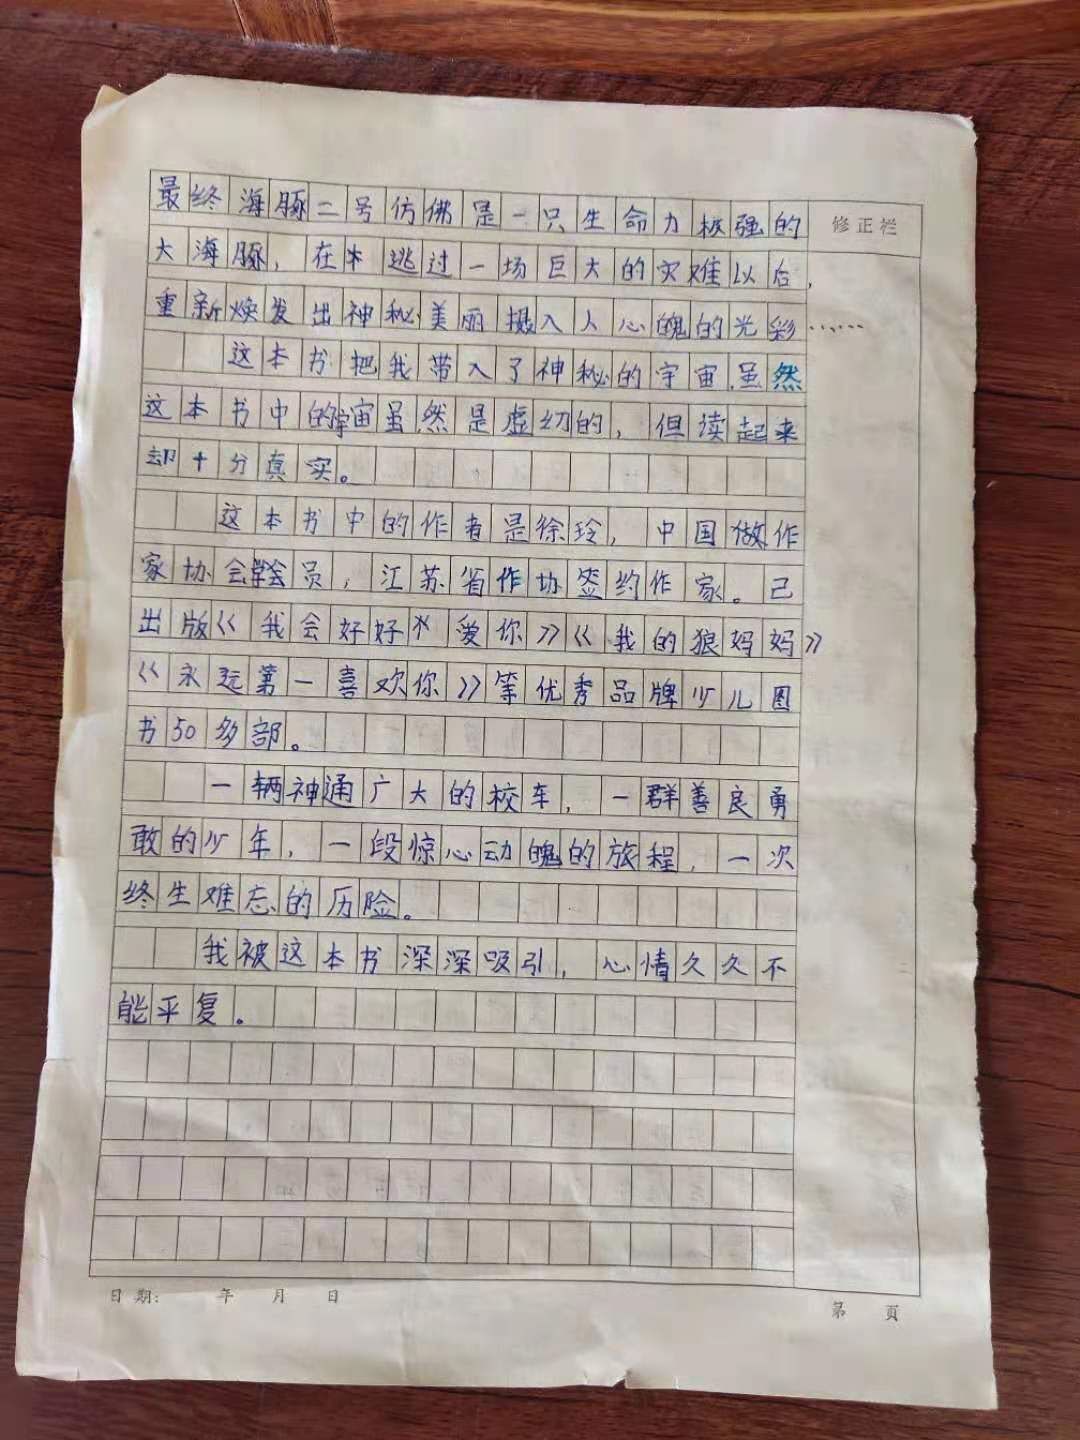 最终海豚二号仿佛是一只生命力极强的
修正栏
大海豚，在逃过一场巨大的灾难以后，
重新焕发出神秘美丽摄入人心魄的光彩……
这本书把我带入了神秘的宇宙.虽然
这本书中的宇宙虽然是虚幻的，但读起来
却十分真实。
这本书中的作者是徐玲，中国做作
家协会学会员，江苏省作协签约作家。已
出版《我会好好爱你》《我的狼妈妈》
《永远第一喜欢你》等优秀品牌少儿图
书50多部。
一辆神通广大的校车，一群善良勇
敢的少年，一段惊心动魄的旅程，一次
终生难忘的历险。
我被这本书深深吸引，心情久久不
能平复。
日期: 年 月 日
第 頁